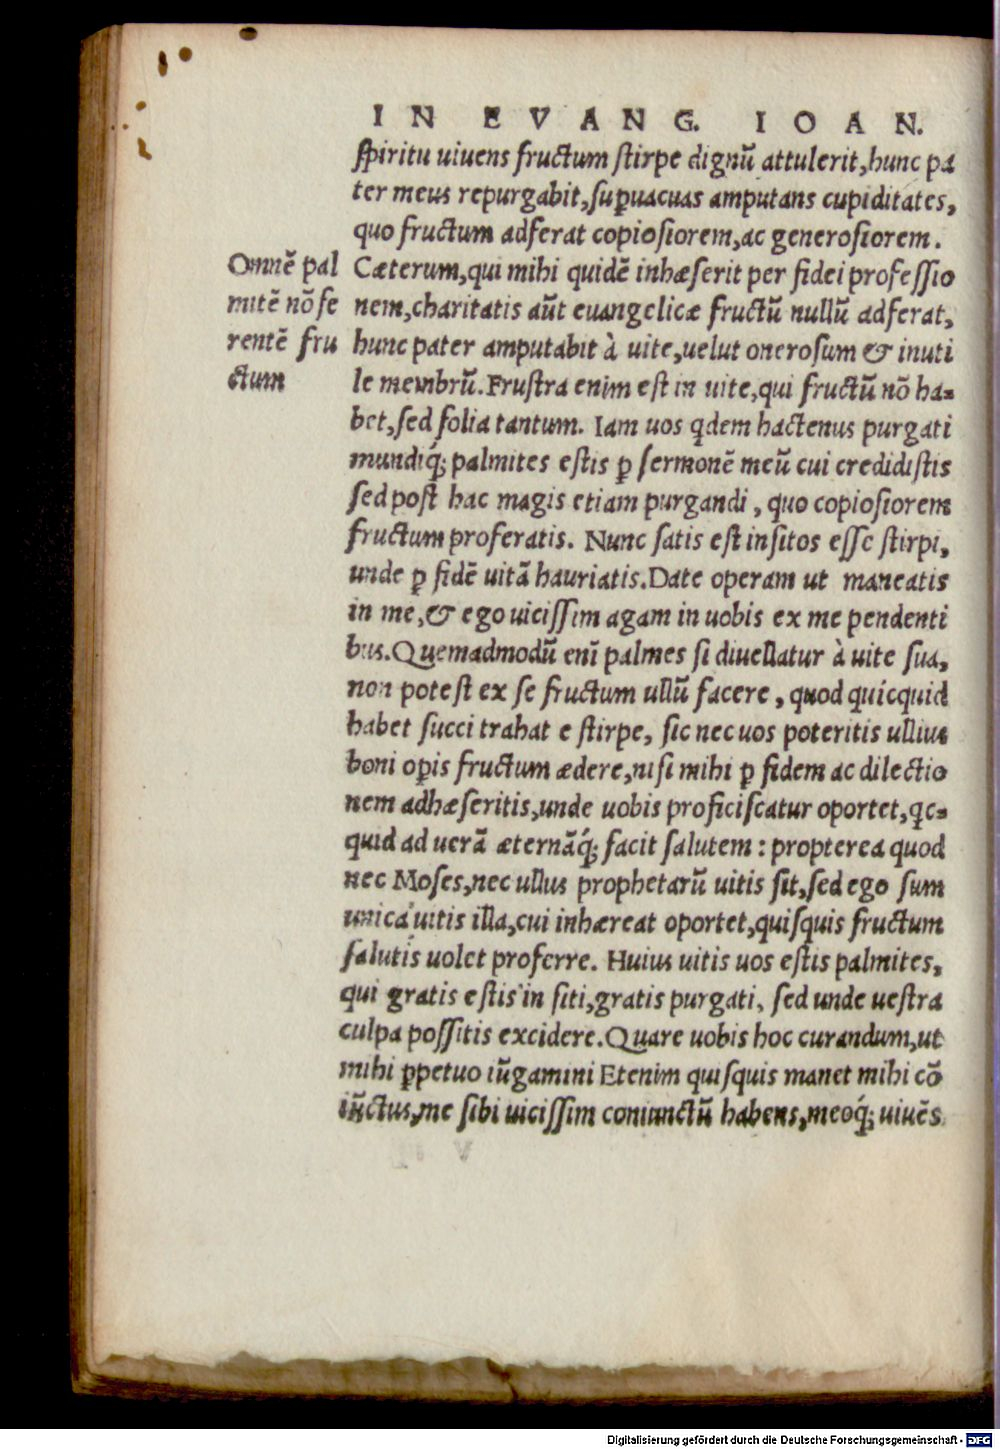 IN EVANG. IOAN.
spiritu uiuens fructum stirpe dignũ attulerit, hunc pa
ter meus repurgabit, sup̱uacuas amputans cupiditates,
quo fructum adferat copiosiorem, ac generosiorem.
Omnẽ pal
mitẽ nõ fe
rentẽ fru
ctum
Cæterum, qui mihi quidẽ inhæserit per fidei professio
nem, charitatis aũt euangelicæ fructũ nullũ adferat,
hunc pater amputabit à uite, uelut onerosum & inuti
le membrũ. Frustra enim est in uite, qui fructũ nõ ha-
bet, sed folia tantum. Iam uos q̱dem hactenus purgati
mundiq́; palmites estis p̱ sermonẽ meũ cui credidistis
sed post hac magis etiam purgandi, quo copiosiorem
fructum proferatis. Nunc satis est insitos esse stirpi,
unde p̱ fidẽ uitã hauriatis. Date operam ut maneatis
in me, & ego uicissim agam in uobis ex me pendenti
bus. Quemadmodũ enĩ palmes si diuellatur à uite sua,
non potest ex se fructum ullũ facere, quod quicquid
habet succi trahat e stirpe, sic nec uos poteritis ullius
boni op̱is fructum ædere, nisi mihi p̱ fidem ac dilectio
nem adhæseritis, unde uobis proficiscatur oportet, q̱c-
quid ad uerã æternãq́; facit salutem: propterea quod
nec Moses, nec ullus prophetarũ uitis sit, sed ego sum
unica uitis illa, cui inhæreat oportet, quisquis fructum
salutis uolet proferre. Huius uitis uos estis palmites,
qui gratis estis in siti, gratis purgati, sed unde uestra
culpa possitis excidere. Quare uobis hoc curandum, ut
mihi p̱petuo iũgamini Etenim quisquis manet mihi cõ
iũctus, me sibi uicissim coniunctũ habens, meoq́; uiuẽs
Digitalisierung gefördert durch die Deutsche Forschungsgemeinschaft - DFG